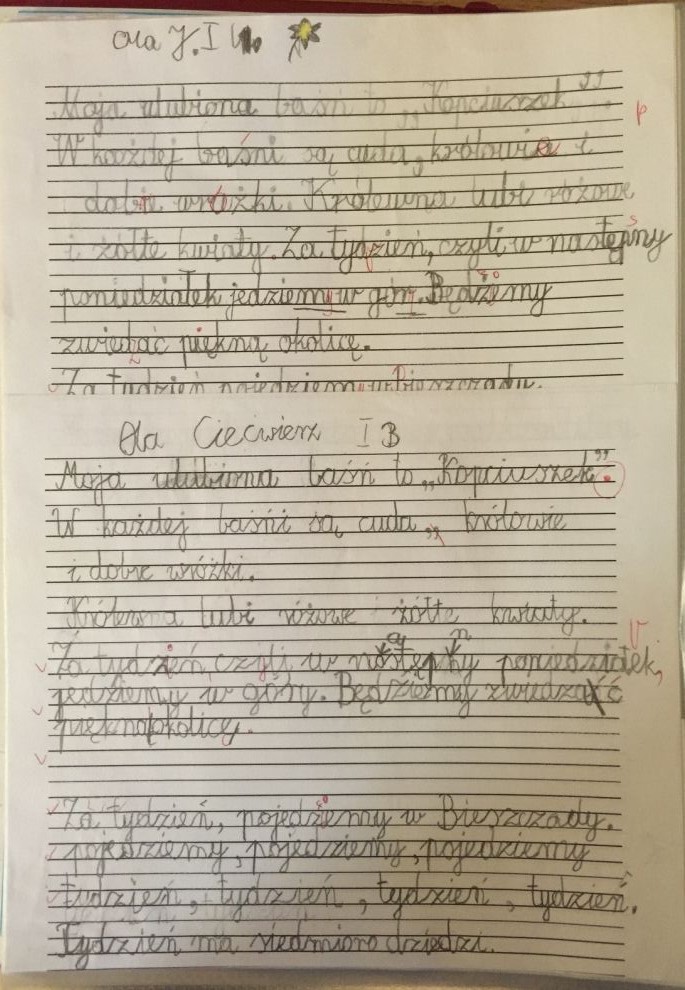 Ola J. I b.
Moja ulubiona baśń to „Kopciuszek”.
W każdej baśni są cuda, królowie i
dobre wróżki. Królewna lubi różowe
i żółte kwiaty. Za tydzień, czyli w następny
poniedziałek jedziemy w góry. Będziemy
zwiedzać piękną okolicę.
Za tydzień pojedziemy w Bieszczady.
Ola Ciećwierz I B
Moja ulubiona baśń to „Kopciuszek”.
W każdej baśni są cuda, królowie
i dobre wróżki.
Królewna lubi różowe i żółte kwiaty.
Za tydzień, czyli w następny poniedziałek,
jedziemy w góry. Będziemy zwiedzać
piękną okolicę.
Za tydzień, pojedziemy w Bieszczady.
pojedziemy, pojedziemy, pojedziemy
tydzień, tydzień, tydzień, tydzień.
Tydzień ma siedmioro dziedzi.